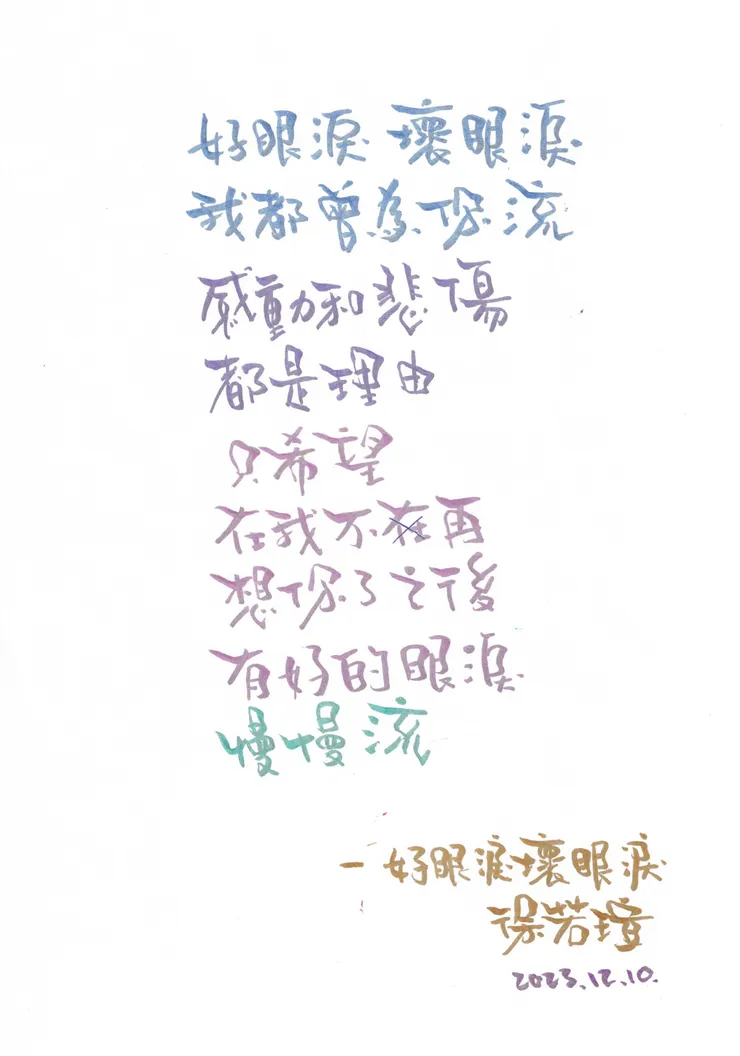 好眼淚 壞眼淚
我都曾為你流
感動和悲傷
都是理由
只希望
在我不在再
想你了之後
有好的眼淚
慢慢流
— 好眼淚壞眼淚
徐若瑄
2023.12.10.